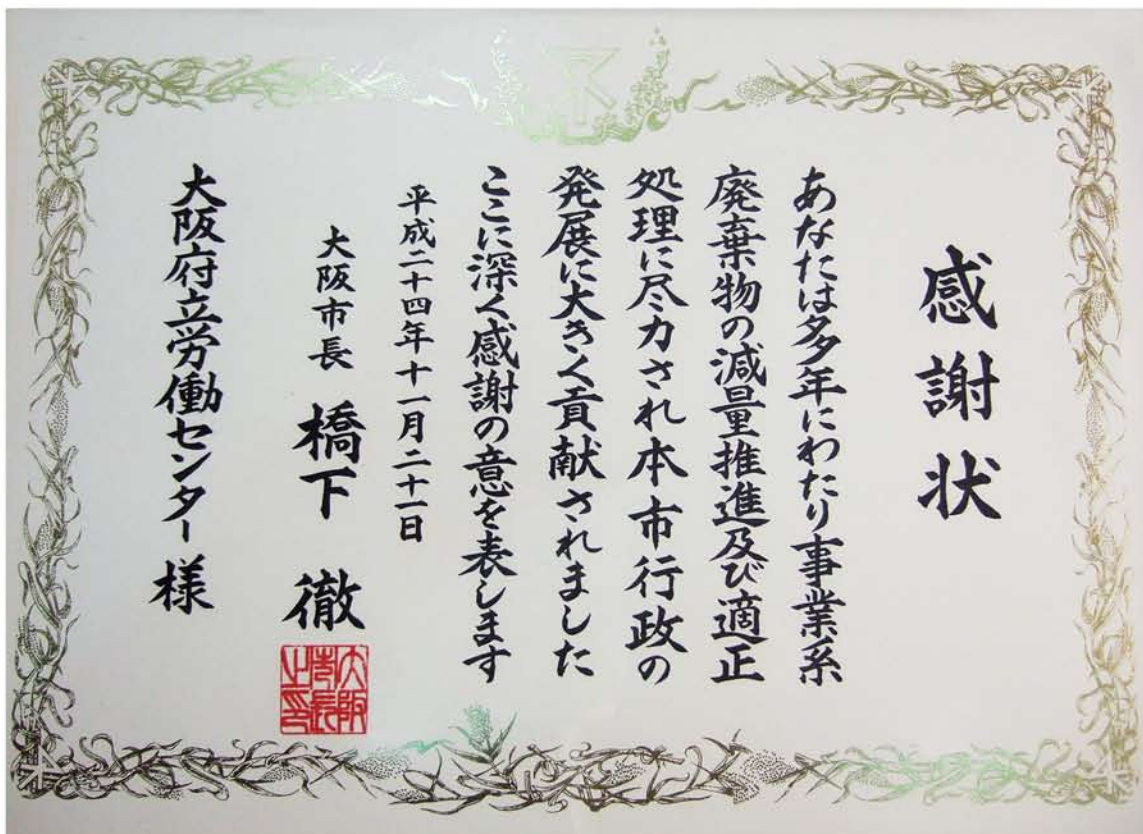 感謝状
あなたは多年にわたり事業系
廃棄物の減量推進及び適正
処理に尽力され本市行政の
発展に大きく貢献されました
ここに深く感謝の意を表します
平成二十四年十一月二十一日
大阪市長 橋下 徹
大阪市長之印
大阪府立労働センター 様